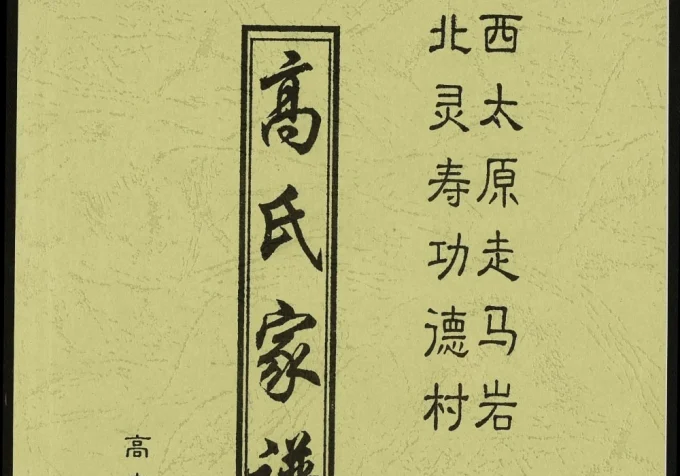 西太原走马岩
北灵寿功德村
高氏家谱
高